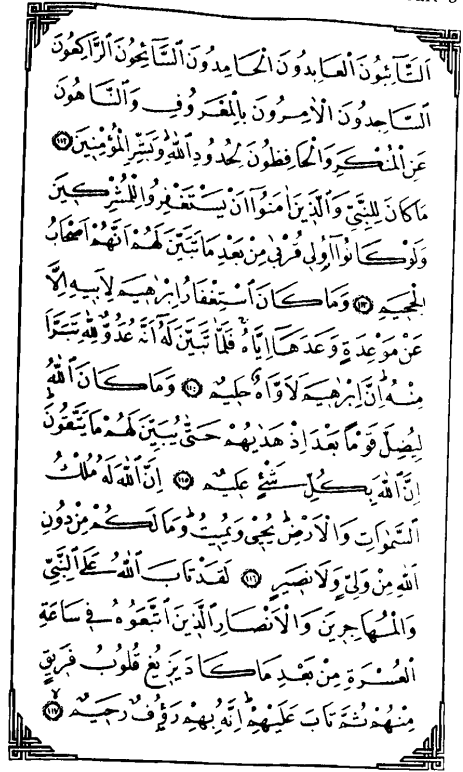 اَلتَّآئِبُونَ الْعَابِدُونَ الْحَامِدُونَ السَّآئِحُونَ الرَّاكِعُونَ
السَّاجِدُونَ الْاٰمِرُونَ بِالْمَعْرُوفِ وَالنَّاهُونَ
عَنِ الْمُنْكَرِ وَالْحَافِظُونَ لِحُدُودِ اللّٰهِ وَبَشِّرِ الْمُؤْمِنِينَ ١١٢
مَا كَانَ لِلنَّبِيِّ وَالَّذِينَ اٰمَنُٓوا اَنْ يَسْتَغْفِرُوا لِلْمُشْرِكِينَ
وَلَوْ كَانُٓوا اُو۬لِي قُرْبٰى مِنْ بَعْدِ مَا تَبَيَّنَ لَهُمْ اَنَّهُمْ اَصْحَابُ
الْجَحِيمِ ١١٣ وَمَا كَانَ اسْتِغْفَارُ اِبْرٰهِيمَ لِاَبِيهِ اِلَّا
عَنْ مَوْعِدَةٍ وَعَدَهَٓا اِيَّاهُۚ فَلَمَّا تَبَيَّنَ لَهُٓ اَنَّهُ عَدُوٌّ لِلّٰهِ تَبَرَّاَ
مِنْهُۜ اِنَّ اِبْرٰهِيمَ لَاَوَّاهٌ حَلِيمٌ ١١٤ وَمَا كَانَ اللّٰهُ
لِيُضِلَّ قَوْمًا بَعْدَ اِذْ هَدٰيهُمْ حَتّٰى يُبَيِّنَ لَهُمْ مَا يَتَّقُونَۜ
اِنَّ اللّٰهَ بِكُلِّ شَيْءٍ عَلِيمٌ ١١٥ اِنَّ اللّٰهَ لَهُ مُلْكُ
السَّمٰوَاتِ وَالْاَرْضِۜ يُحْيِي وَيُمِيتُۜ وَمَا لَكُمْ مِنْ دُونِ
اللّٰهِ مِنْ وَلِيٍّ وَلَا نَصِيرٍ ١١٦ لَقَدْ تَابَ اللّٰهُ عَلَى النَّبِيِّ
وَالْمُهَاجِرِينَ وَالْاَنْصَارِ الَّذِينَ اتَّبَعُوهُ فِي سَاعَةِ
الْعُسْرَةِ مِنْ بَعْدِ مَا كَادَ يَزِيغُ قُلُوبُ فَرِيقٍ
مِنْهُمْ ثُمَّ تَابَ عَلَيْهِمْۜ اِنَّهُ بِهِمْ رَؤُ۫فٌ رَحِيمٌ ١١٧